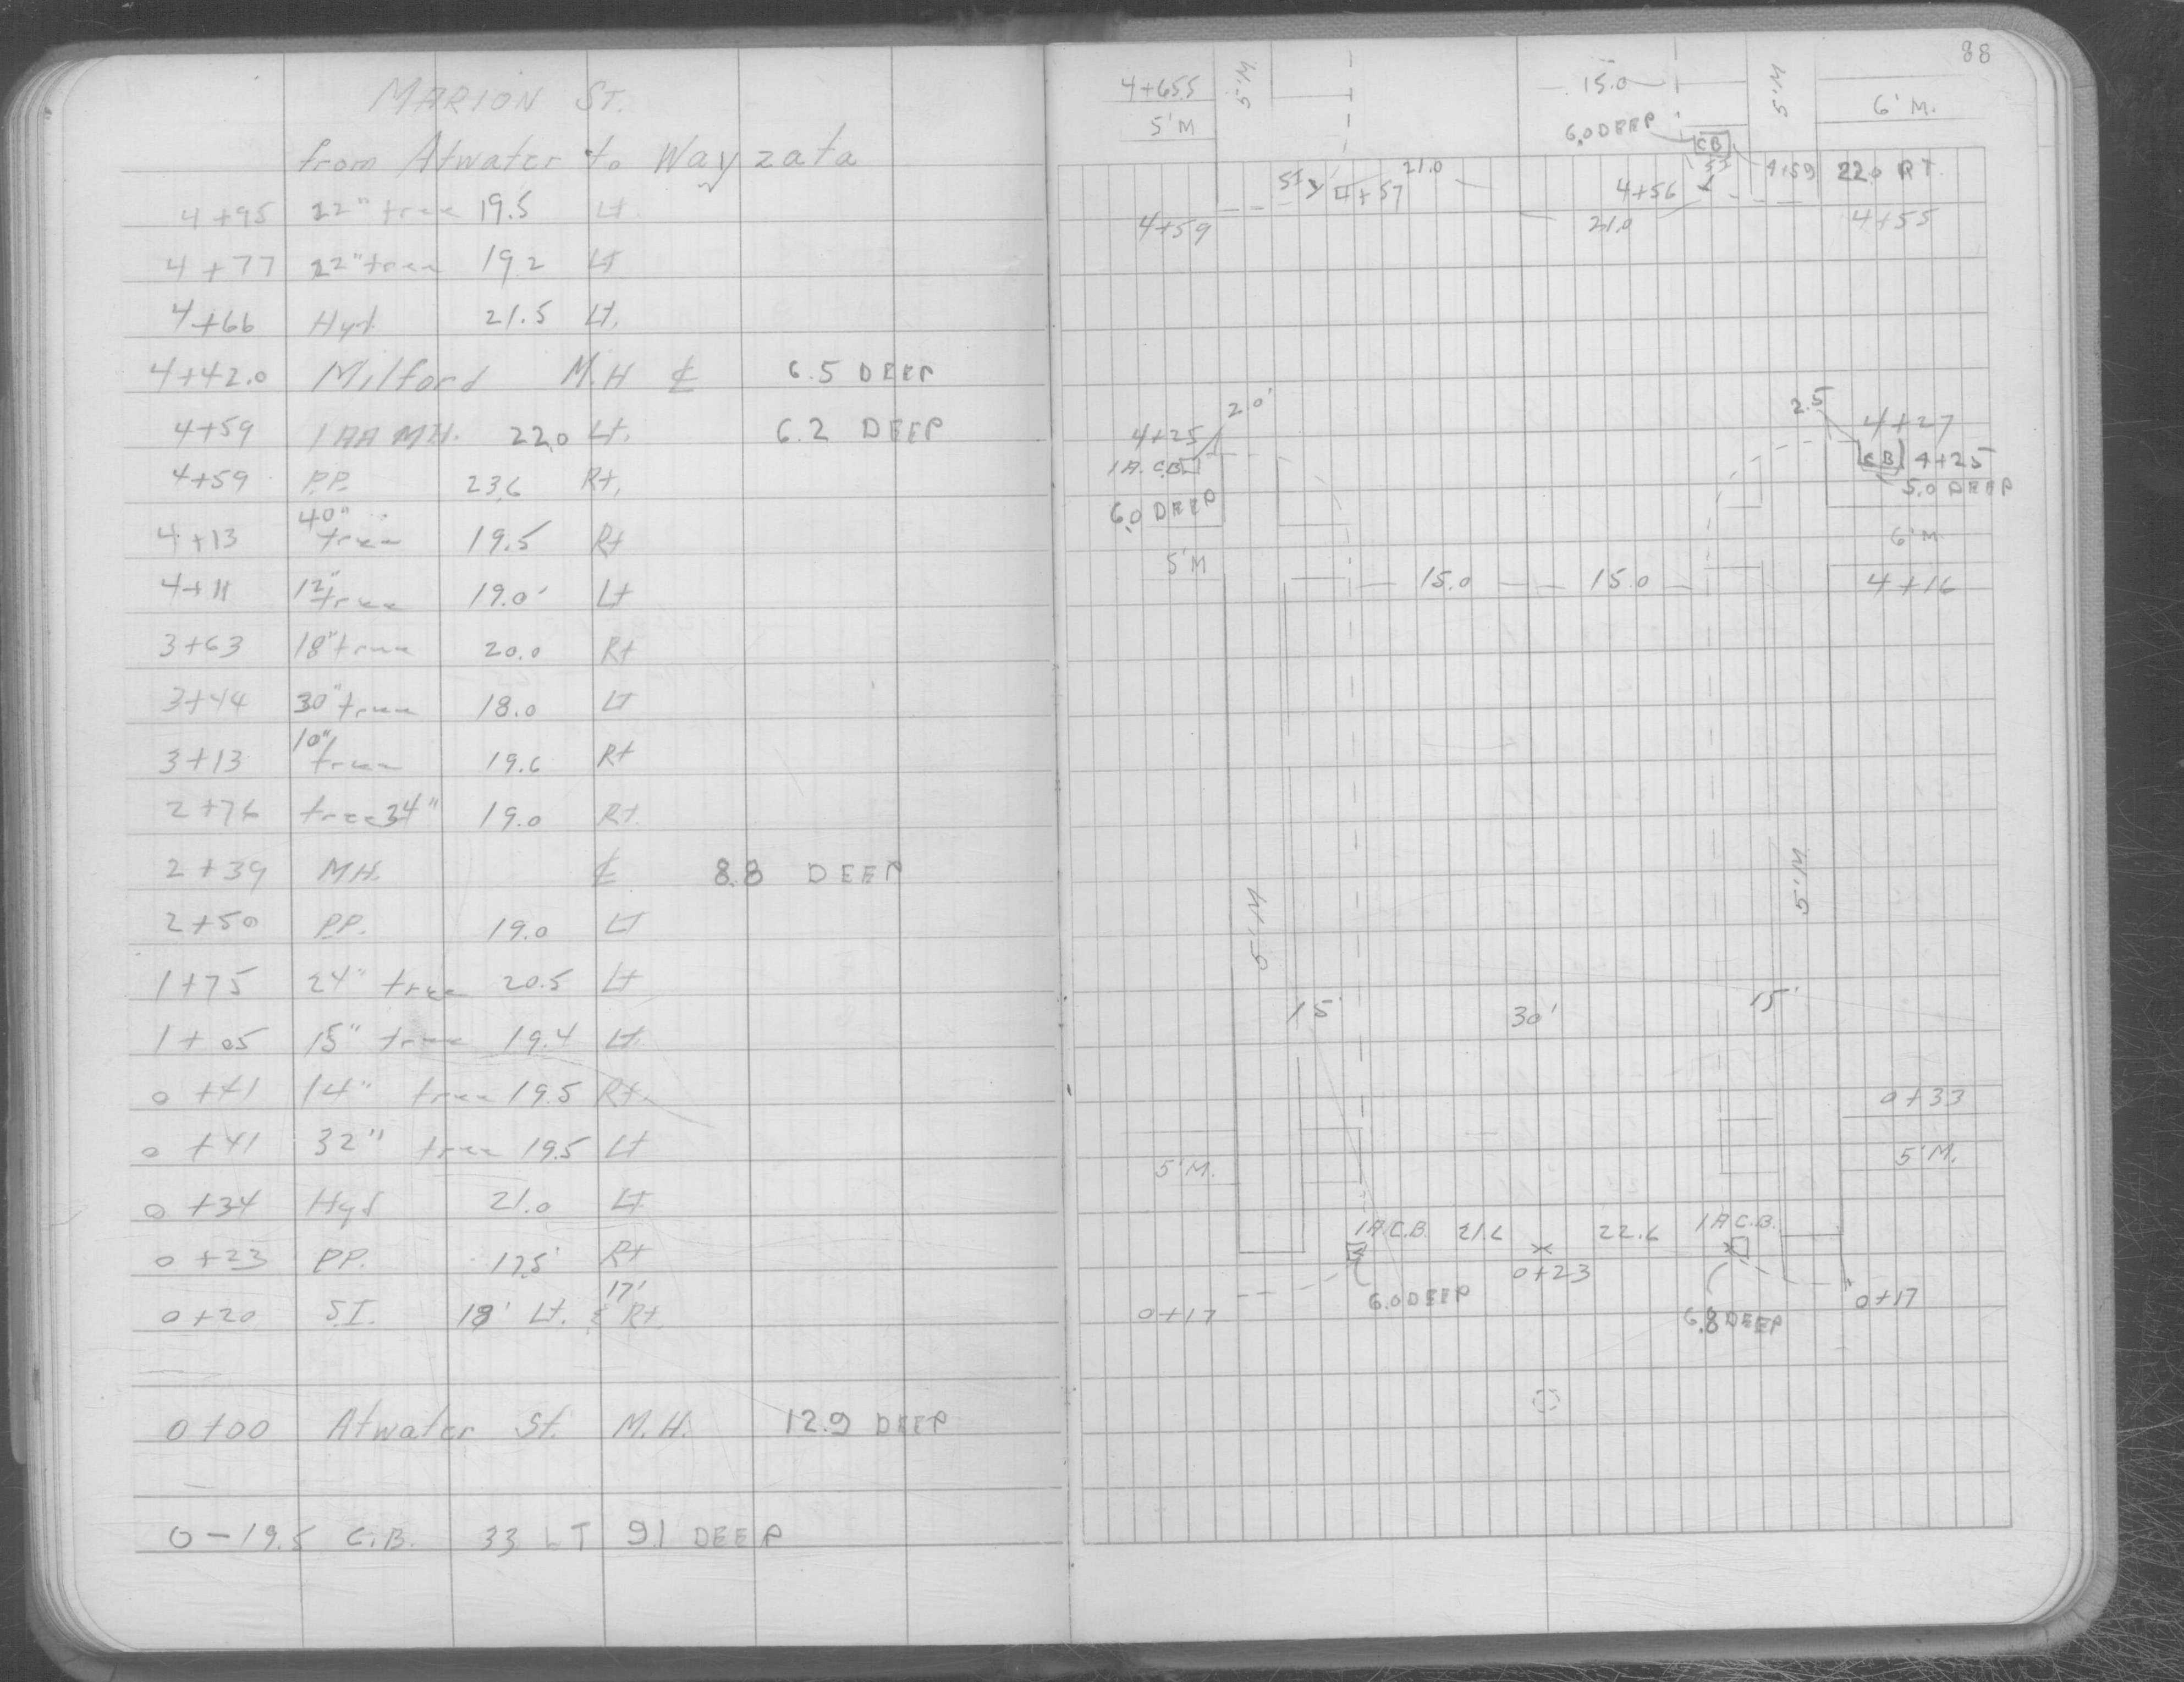 MARION ST.
from Atwater to Wayzata
4+95 22" tree 19.5 Lt.
4+77 22" tree 19.2 Lt
4+66 Hyd. 21.5 Lt.
4+42.0 Milford M.H ℄ 6.5 DEEP
4+59 1AA MH. 22.0 Lt. 6.2 DEEP
4+59 P.P. 23.6 Rt.
4+13 40" tree 19.5 Rt
4+11 12" tree 19.0' Lt
3+63 18" tree 20.0 Rt
3+44 30" tree 18.0 LT
3+13 10" tree 19.6 Rt
2+76 tree 34" 19.0 Rt.
2+39 MH. ℄ 8.8 DEEP
2+50 P.P. 19.0 LT
1+75 24" tree 20.5 Lt
1+05 15" tree 19.4 Lt.
0+41 14" tree 19.5 Rt.
0+41 32" tree 19.5 Lt
0+34 Hyd 21.0 Lt
0+23 P.P. 17.5' Rt
0+20 S.I. 18' Lt. & 17' Rt.
0+00 Atwater St. M.H. 12.9 DEEP
0-19.5 C.B. 33 LT 9.1 DEEP
88
4+65.5 5'M 15.0 5'M
5'M 6.0 DEEP 6'M.
CB
SI 4+57 21.0 4+56 SI 4+59 22.0 RT.
4+59 21.0 4+55
2.0' 2.5
4+25 4+27
1A. C.B. CB 4+25
6.0 DEEP 5.0 DEEP
6'M
5'M 15.0 15.0 4+16
5'M 5'M
15' 30' 15'
0+33
5'M. 5'M.
1A.C.B. 21.6 22.6 1A C.B.
0+23
6.0 DEEP
0+17 6.8 DEEP 0+17